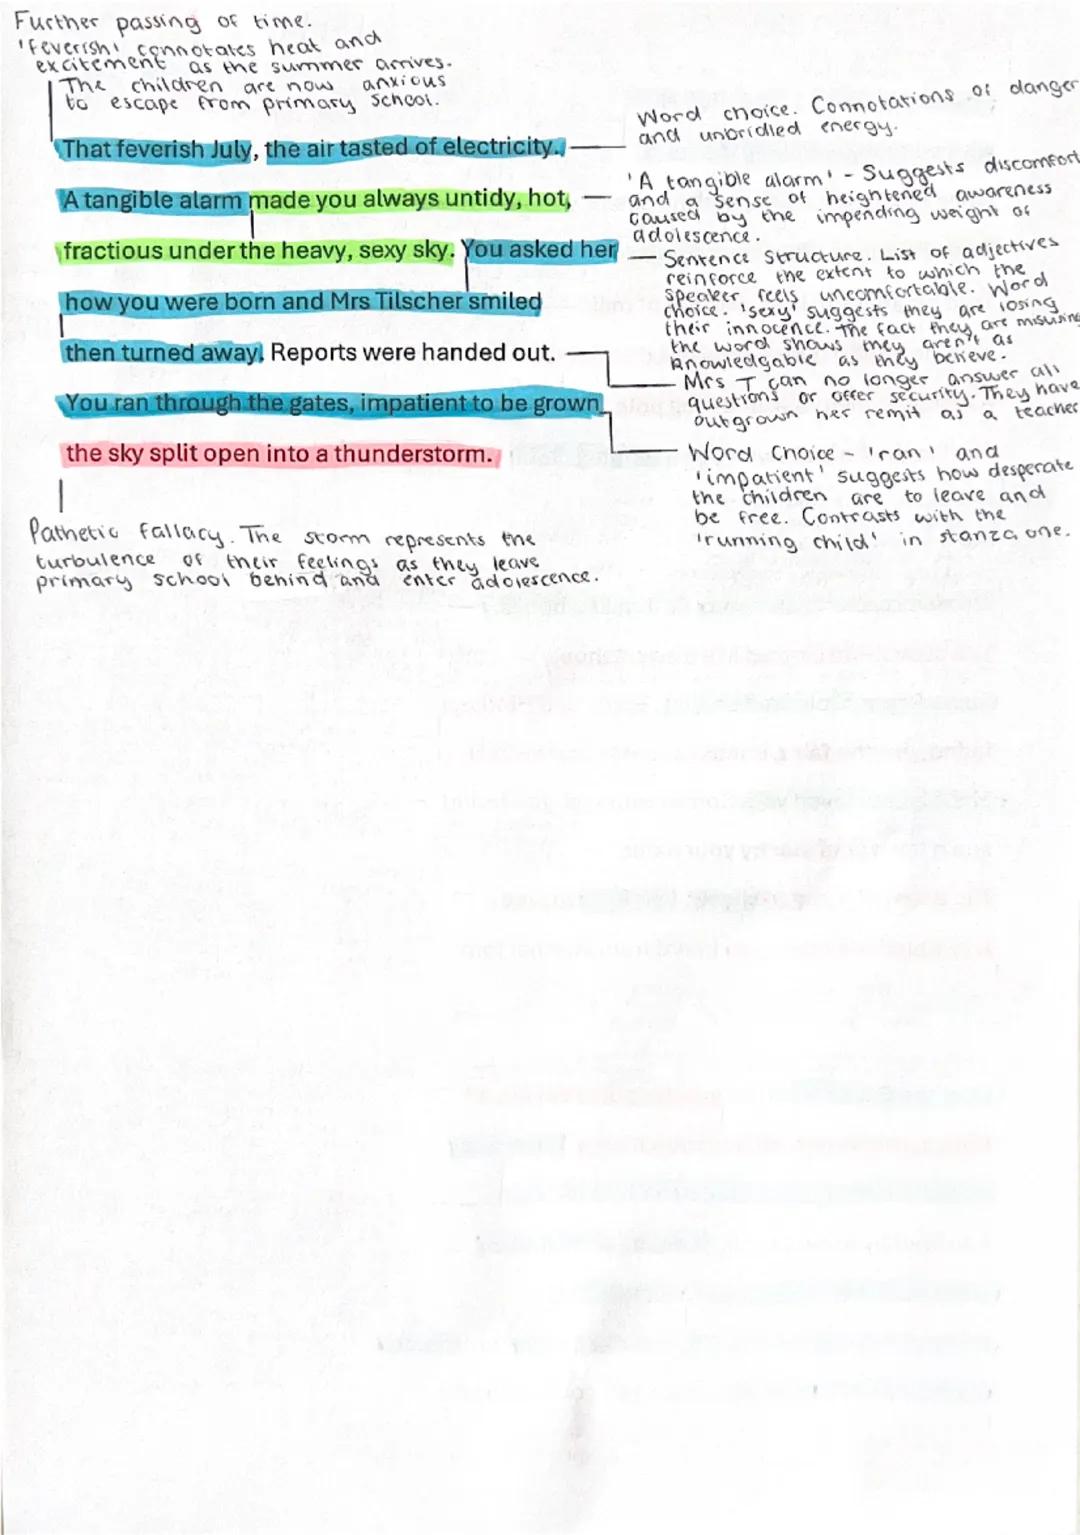 Further passing of time.
'feverish' connotates heat and
excitement as the summer arrives.
The children are now anxious
to escape from primary school.
Word choice. Connotations of danger
and unbridled energy.
That feverish July, the air tasted of electricity.
'A tangible alarm' - Suggests discomfort
and a sense of heightened awareness
caused by the impending weight of
adolescence.
A tangible alarm made you always untidy, hot,
fractious under the heavy, sexy sky. You asked her
Sentence Structure. List of adjectives
reinforce the extent to which the
speaker feels uncomfortable. Word
choice. 'sexy' suggests they are losing
their innocence. The fact they are misusing
the word shows they aren't as
knowledgable as they believe.
how you were born and Mrs Tilscher smiled
then turned away. Reports were handed out.
Mrs T can no longer answer all
questions or offer security. They have
outgrown her remit as a teacher
You ran through the gates, impatient to be grown,
the sky split open into a thunderstorm.
Word Choice - 'ran' and
'impatient' suggests how desperate
the children are to leave and
be free. Contrasts with the
'running child' in stanza one.
Pathetic fallacy. The storm represents the
turbulence of their feelings as they leave
primary school behind and enter adolescence.